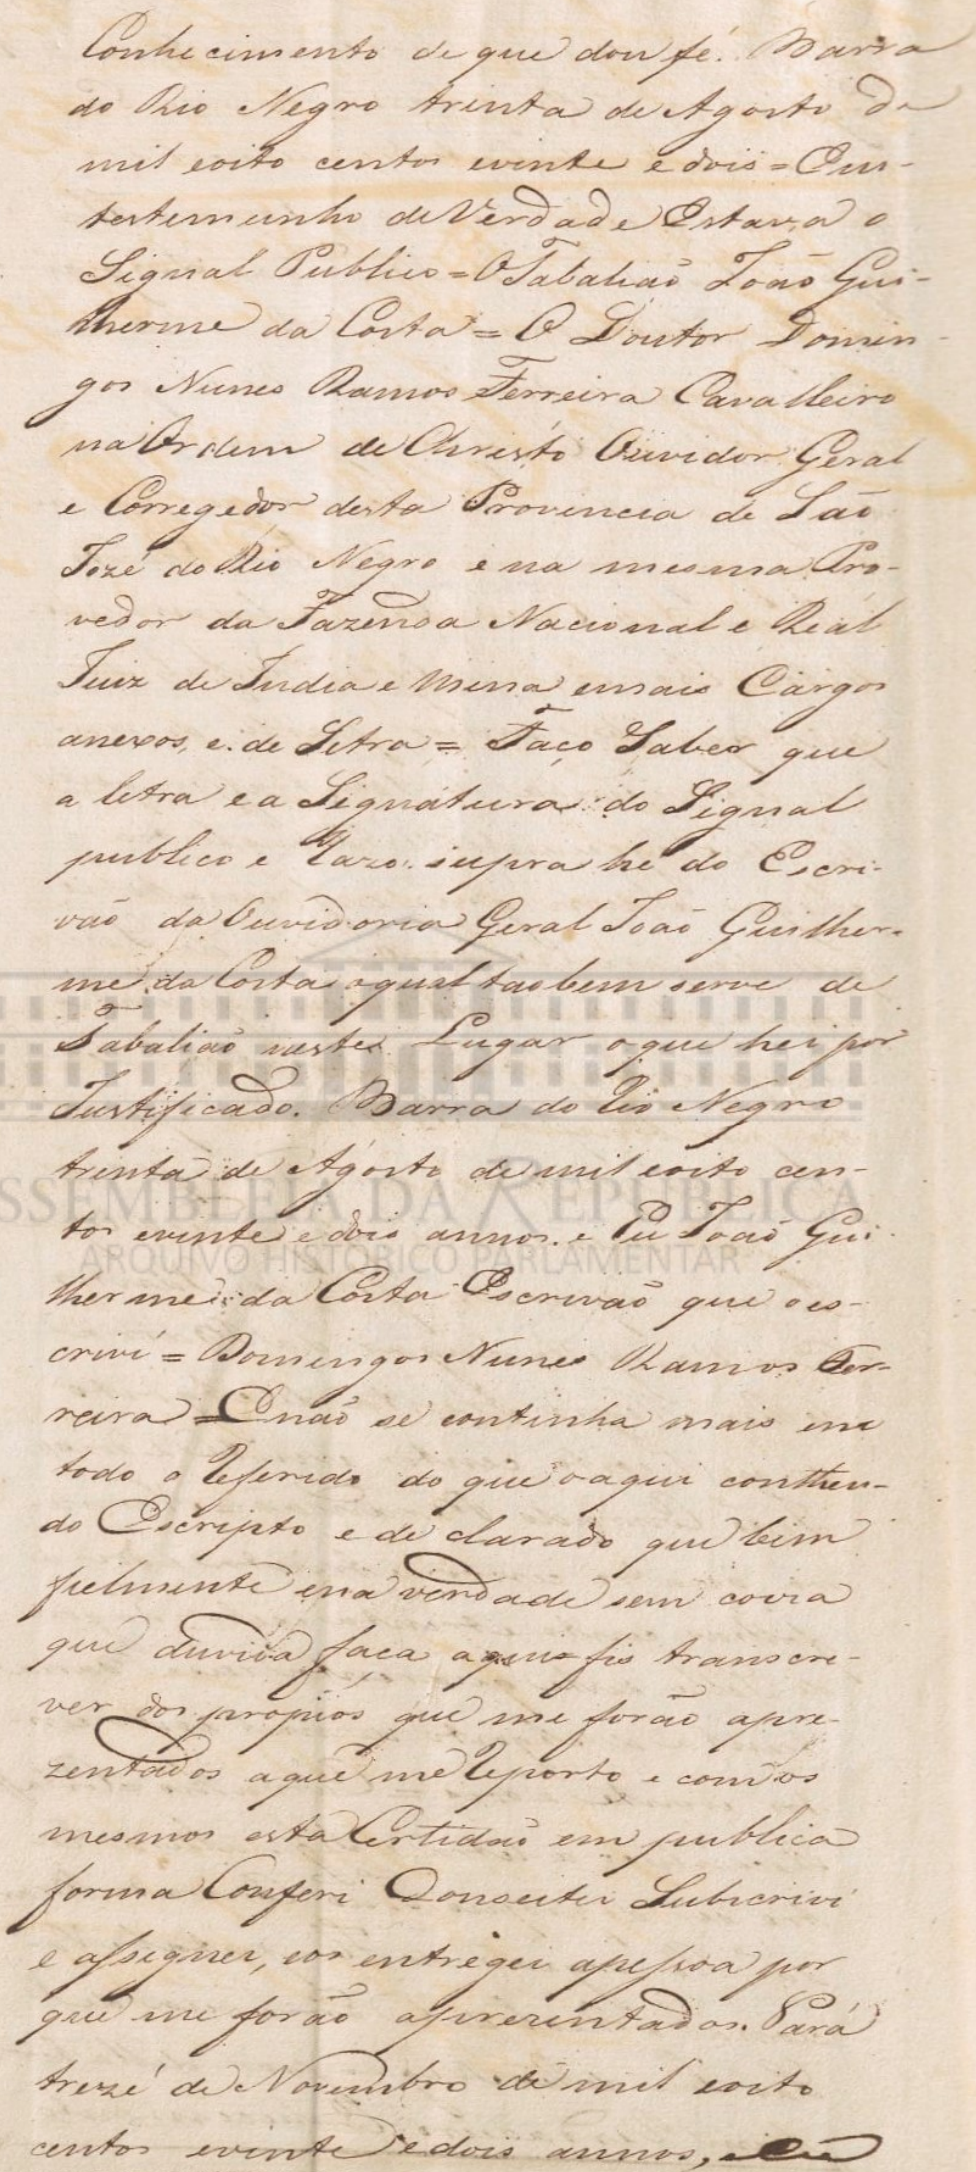 Conhecimento de que dou fé. Barra
do Rio Negro trinta de Agosto de
mil eoito centos evinte e dois = Em-
testemunho de Verdade Estava o
Signal Publico = O Tabaliaõ Joaõ Gui-
lherme da Costa = O Doutor Domin-
gos Nunes Ramos Ferreira Cavalleiro
na Ordem de Christo Ouvidor Geral
e Corregedor desta Provincia de Saõ
Jozé do Rio Negro e na mesma Pro-
vedor da Fazenda Nacional e Real
Juiz de India e Mina emais Cargos
anexos, e de Letra = Faço Saber que
a letra e a Signatura do Signal
publico e Razo supra he do Escri-
vaõ da Ouvidoria Geral Joaõ Guilher-
me da Costa oqual taobem serve de
Tabaliaõ neste Lugar oque hei por
Justificado. Barra do Rio Negro
trinta de Agosto de mil eoito cen-
ASSEMBLEIA DA REPÚBLICA
tos evinte e dois annos. e Eu Joaõ Gui-
ARQUIVO HISTÓRICO PARLAMENTAR
lherme da Costa Escrivaõ que o es-
crivi = Domingos Nunes Ramos Fer-
reira = Enaõ se continha mais em
todo o Referido do que oaqui contheu-
do Escripto e de clarado que bem
fielmente ena verdade sem couza
que duvida faca aqui fis transcre-
ver dos propios que me foraõ apre-
zentados aque me Reporto e com os
mesmos esta Certidaõ em publica
forma Conferi Conseitei Subscrivi
e assignei, eos entregei apessoa por
que me foraõ aprezentados. Pará
treze de Novembro de mil eoito
centos evinte e dois annos, e Eu